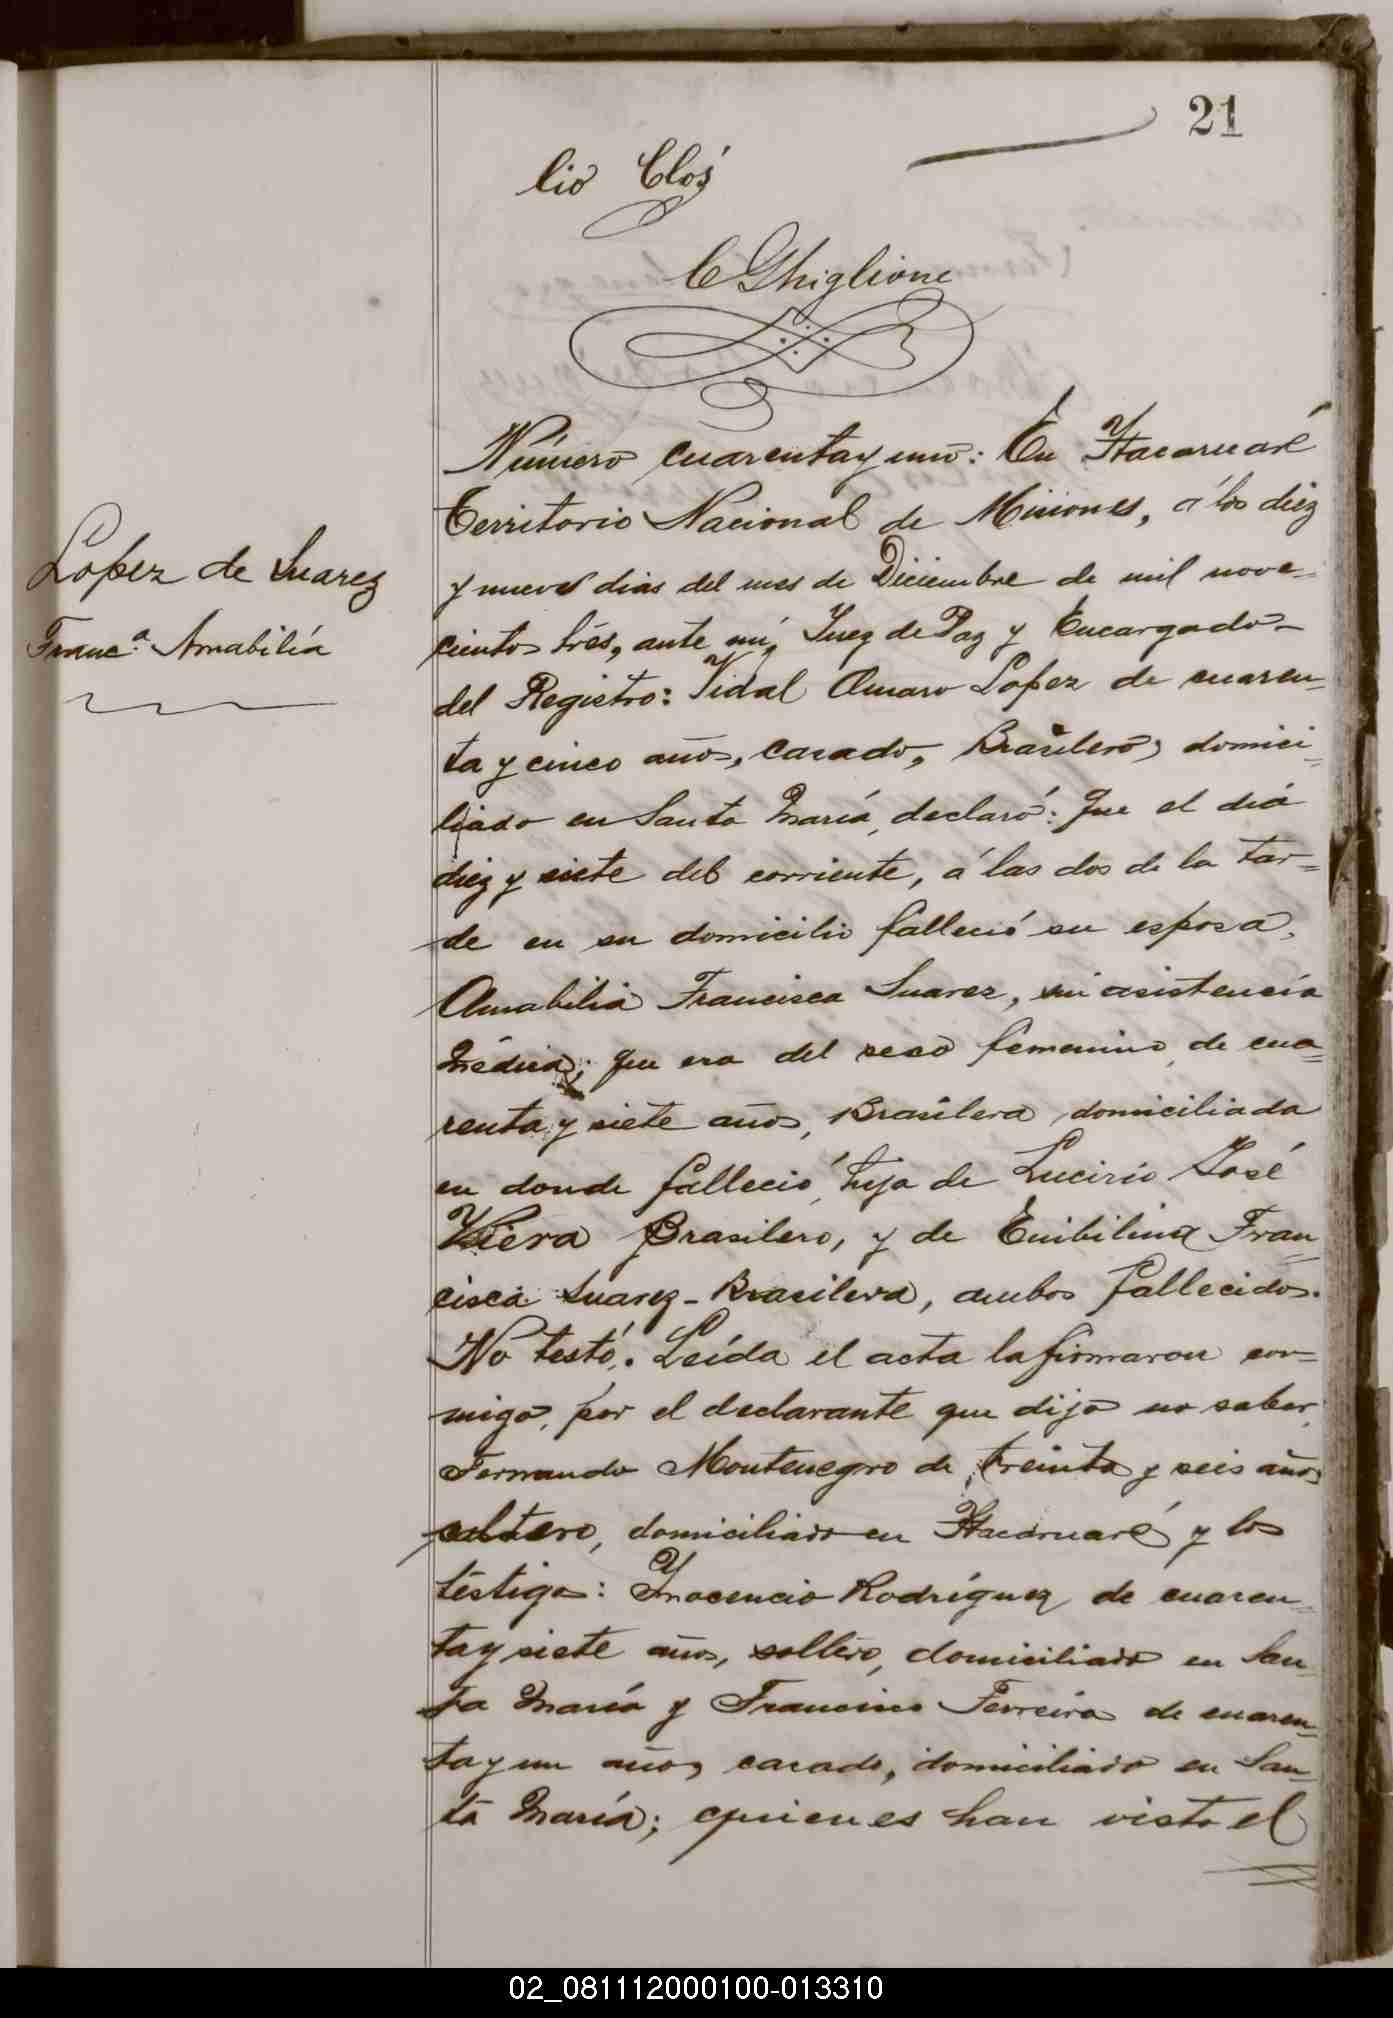 21
lio Clós
C Ghiglione
Número cuarenta y uno: En Ytacaruaré
Territorio Nacional de Misiones, á los diez
y nueve dias del mes de Diciembre de mil nove-
cientos trés, ante mí, Juez de Paz y Encargado
del Registro: Vidal Amaro Lopez de cuaren-
ta y cinco años, casado, Brasilero, domici-
liado en Santa María, declaró: Que el día
diez y siete del corriente, á las dos de la tar-
de en su domicilio falleció su esposa,
Lopez de Suarez
Franc.ª Amabilía
Amabilia Francisca Suarez, sin asistencia
médica; que era del sexo femenino, de cua-
renta y siete años, Brasilera domiciliada
en donde falleció, hija de Lucirio José
Viera Brasilero, y de Emibilina Fran-
cisca Suarez - Brasilera, ambos fallecidos.
No testó. Leída el acta la firmaron con-
migo, por el declarante que dijo no saber,
Fernando Montenegro de treinta y seis años
soltero, domiciliado en Ytacaruaré y los
téstigos: Ynocencio Rodríguez de cuaren-
ta y siete años, soltero, domiciliado en San-
ta María y Francisco Ferreira de cuaren-
ta y un años, casado, domiciliado en San-
ta María; quienes han visto el
02_081112000100-013310